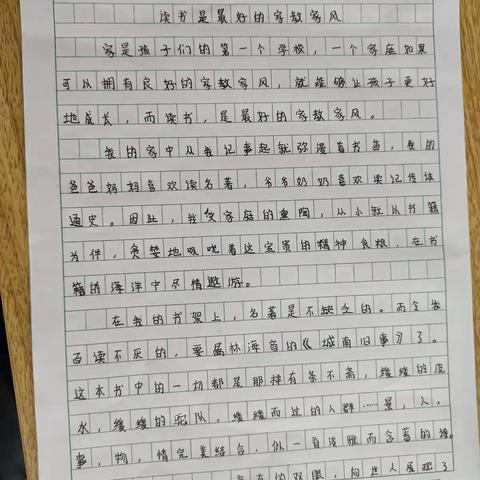 读书是最好的家教家风
家是孩子们的第一个学校,一个家庭如果
可以拥有良好的家教家风,就能够让孩子更好
地成长,而读书,是最好的家教家风。
我的家中从我记事起就弥漫着书香,我的
爸爸妈妈喜欢读名著,爷爷奶奶喜欢读记传体
通史。因此,我受家庭的熏陶,从小就以书籍
为伴,贪婪地吸吮着这宝贵的精神食粮,在书
籍的海洋中尽情遨游。
在我的书架上,名著是不缺乏的。而令我
百读不厌的,要属林海音的《城南旧事》了。
这本书中的一切都是那样有条不紊,缓缓的流
水,缓缓的驼队,缓缓而过的人群……景,人,
事,物,情完美结合,似一首淡雅而含蓄的诗。
的双眼,向世人展现了